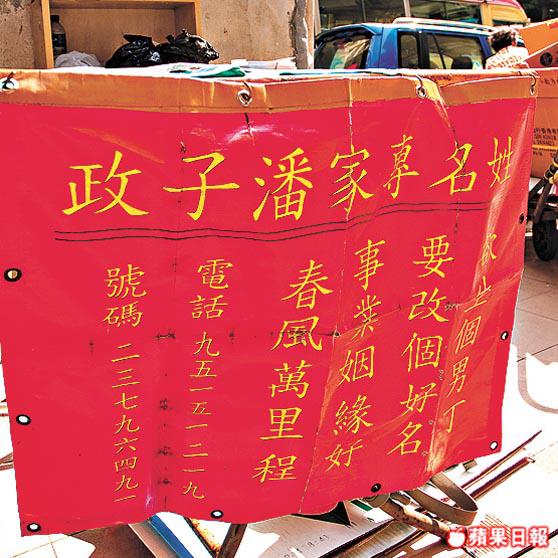 姓名專家潘子政
欲生個男丁
要改個好名
事業姻緣好
春風萬里程
電話 九五一五一二一九
號碼 二三七九六四九一
蘋果日報